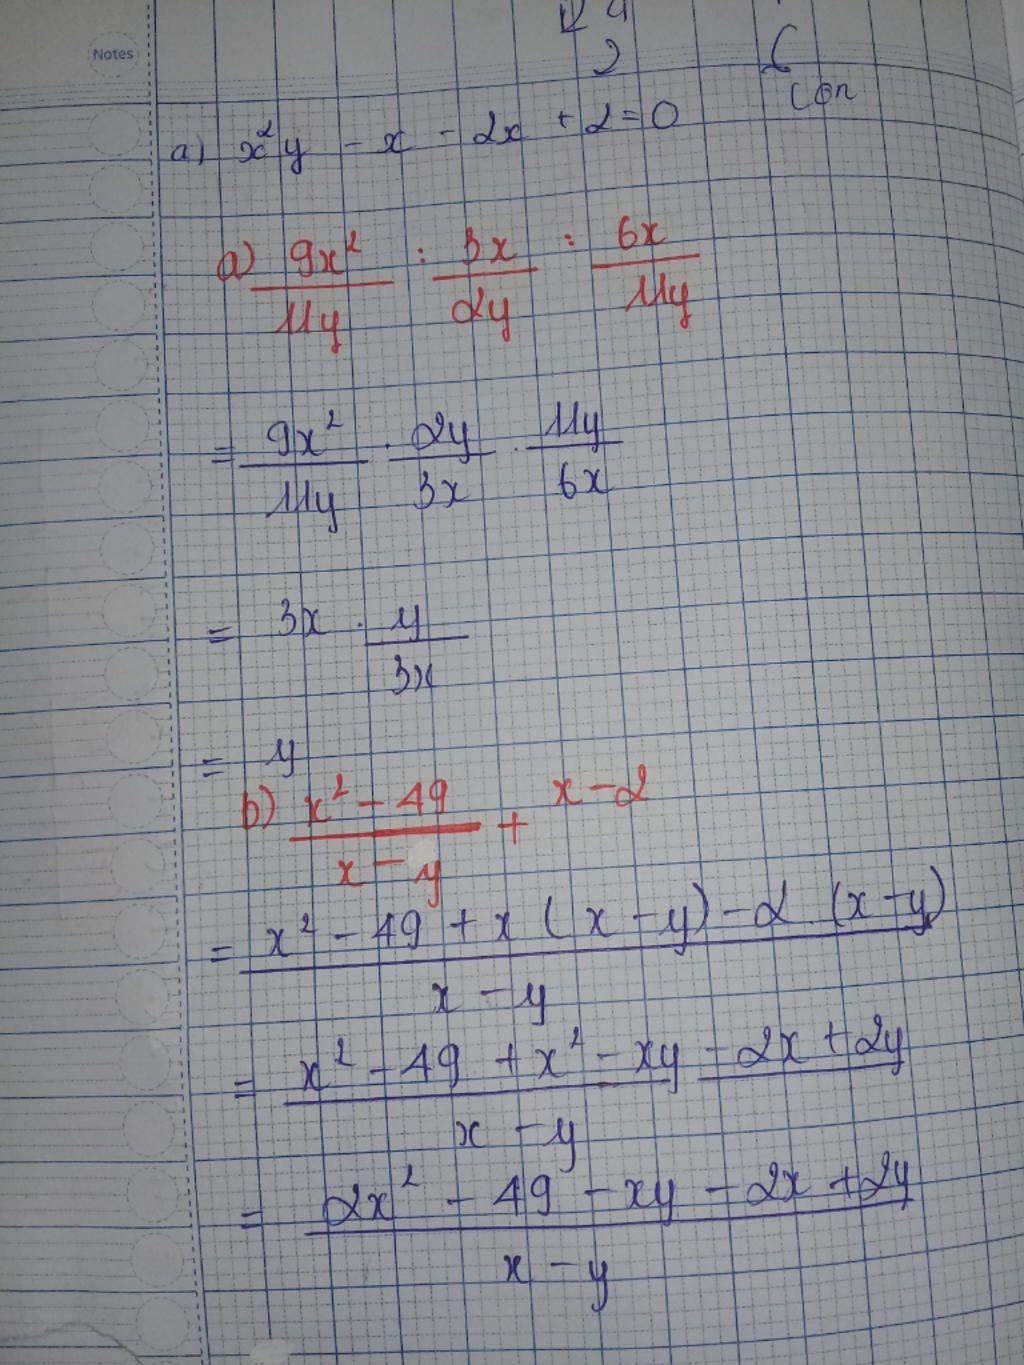 Notes
2
a) x²y - x - 2x + 2 = 0
a) 9x²/11y : 3x/2y : 6x/11y
= 9x²/11y . 2y/3x . 11y/6x
= 3x . y/3x
= y
b) x² - 49/x - y + x - 2
= x² - 49 + x (x - y) - 2 . (x - y)/x - y
= x² - 49 + x² - xy - 2x + 2y/x - y
= 2x² - 49 - xy - 2x + 2y/x - y